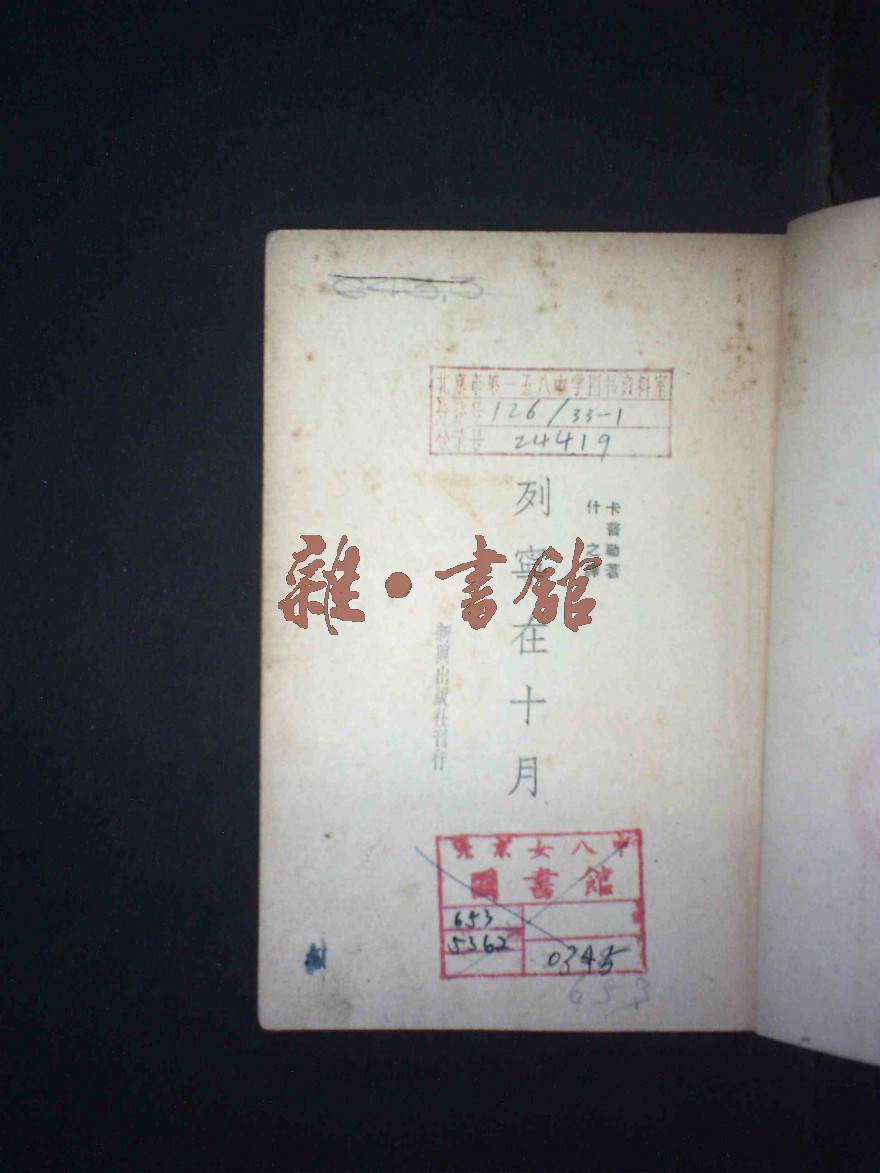 643.3
北京市第一五八中学图书资料室
分类号 126/33-1
登录号 24419
卡普勒著
什之譯
列寧在十月
雜·書館
新興出版社刊行
北京女八中
圖書館
653
5362
0345
653